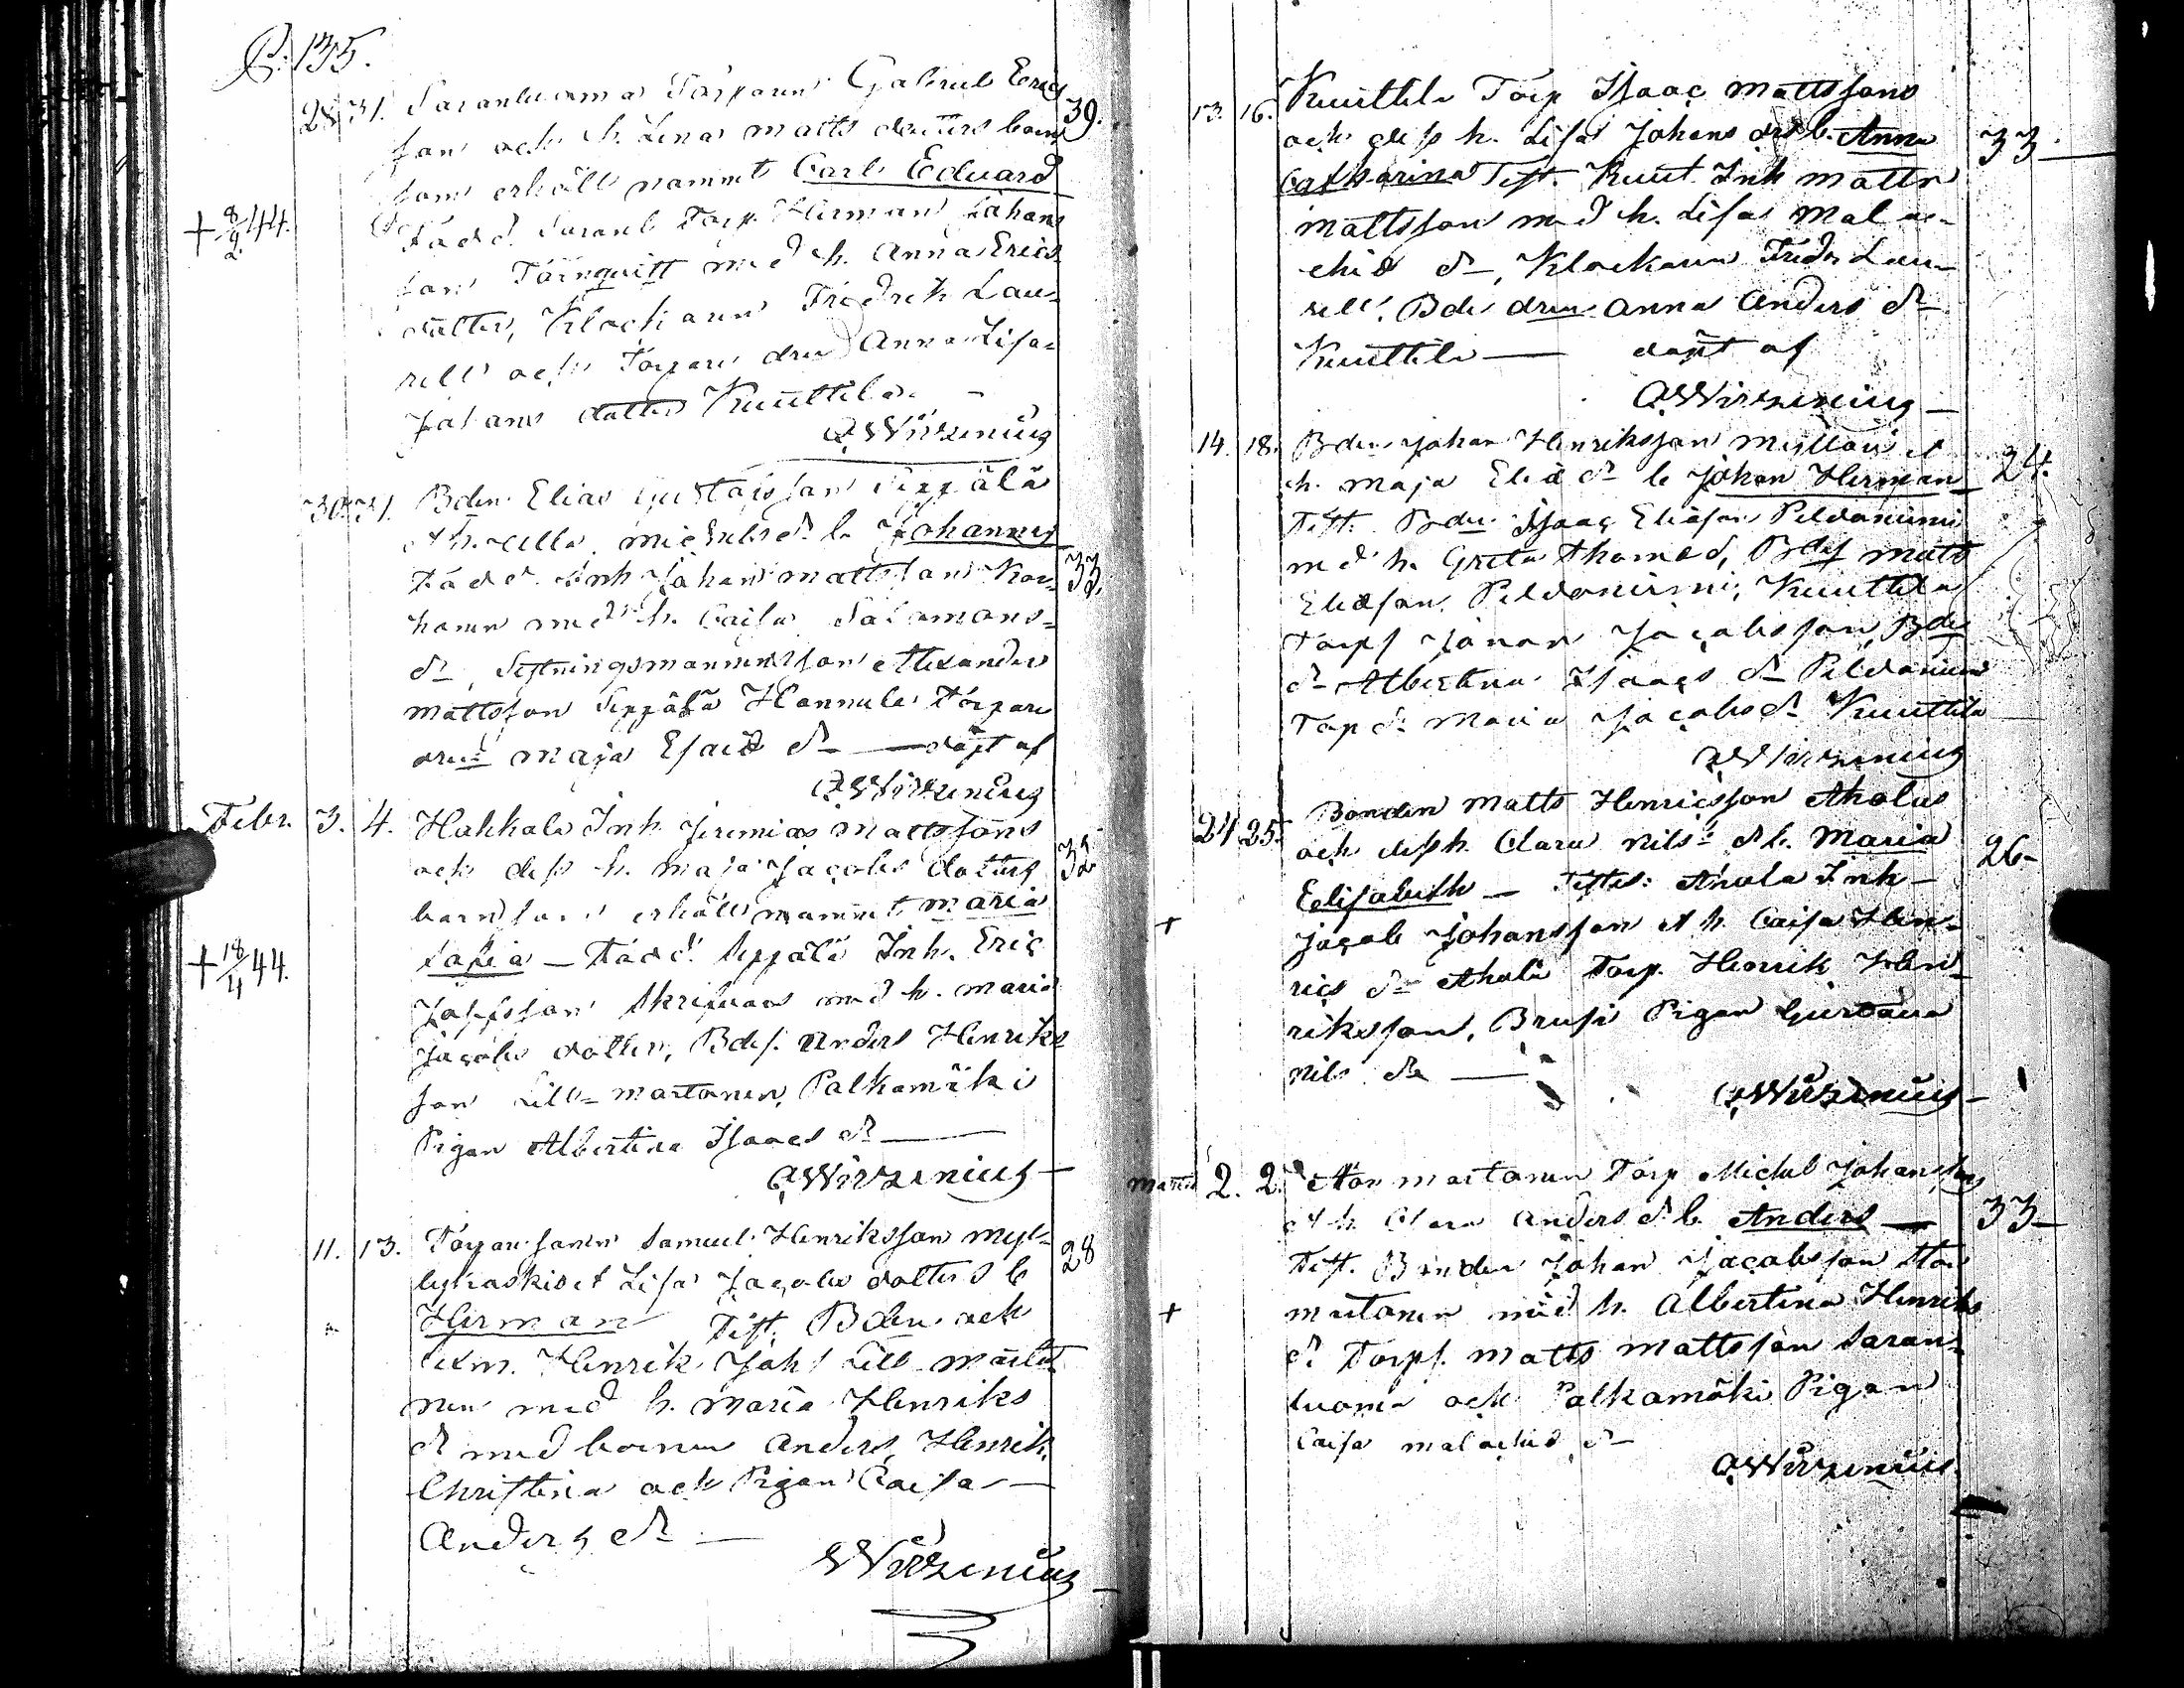 P. 135.
28 31. Saranluoma Torparen Gabriel Erics 39.
son och h. Lena Matts dotters barn
som erhöll namnet Carl Eduard
+ 8/2 44. Fadd. Saranl. Torp. Herman Johans
son Törnqvist med h. Anna Erics
dotter, Klockaren Fredrik Lau-
rell och Torpare dren Anna Lisa
Johans dotter Kuuttila. —
Wirzenius
30 31. Bden Elias Gustafsson Seppälä
et h. Ulla Michels dr b. Johannes 33.
Fadd. Inh Johan Mattsson Kor-
honen med h. Caisa Salomons-
dr, Sexmannen Alexander
Mattsson Seppälä Hannula Torpare
dren Maja Esaiæ dr — döpt af
Wirzenius
Febr. 3. 4. Hakkala Inh. Jeremias Mattssons
och dess h. Maja Jacobs dotters 32
barn som erhöll namnet Maria
Sofia — Fadd. Seppälä Inh. Eric
+ 18/4 44.
med h. Maria
Jacobs dotter, Bdes. Anders Henriks
son Lill-Martonen, Palkamäki
Pigan Albertina Isaacs dr —
Wirzenius —
11. 13. Samuel Henriksson Myl- 28
lykoski et Lisa Jacobs dotters b
Herman Test. Bden och
Henrik Joh. Lill Marto-
nen med h. Maria Henriks
dr med barnen Anders, Henrik,
Christina och Pigan Caisa —
Anders dr —
Wirzenius —
13. 16. Kuuttila Torp Isaac Mattssons
och dess h. Lisa Johans drs b. Anna 33.
Catharina Test. Kuut. Inh Matts
Mattsson med h. Lisa Mala-
chiæ dr, Klockaren Fredr Lau-
rell, Bde dren Anna Anders dr
Kuuttila — döpt af
Wirzenius —
14. 18. Bden Johan Henriksson Myllari et
h. Maja Eliæ dr b Johan Herman 24.
Test. Bden Isaac Eliæson Peldoniemi
med h. Greta Thomæ d, Bdes Matts
Eliæson Peldoniemi, Kuuttila
Torps Johan Jacobsson, Bde
dr Albertina Isaacs dr Peldoniemi
Torp dr Maria Jacobs dr Kuuttila
Wirzenius
24 25. Bonden Matts Henricsson Ahola
och dess h. Clara Nils dr b. Maria 26-
Elisabeth — Testes: Ahola Inh —
+ Jacob Johansson et h. Caisa Hen-
rics dr Ahola Torp. Henrik Hen-
riksson, Brusi Pigan
Nils dr —
Wirzenius —
Martii 2. 2. Martonen Torp Michel Johansson
et h. Clara Anders dr b. Anders — 33-
Test. Bonden Johan Jacobsson
+ Martonen med h. Albertina Henriks
dr Torps. Matts Mattsson Saran-
luoma och Palkamäki Pigan
Caisa Malachiæ dr
Wirzenius